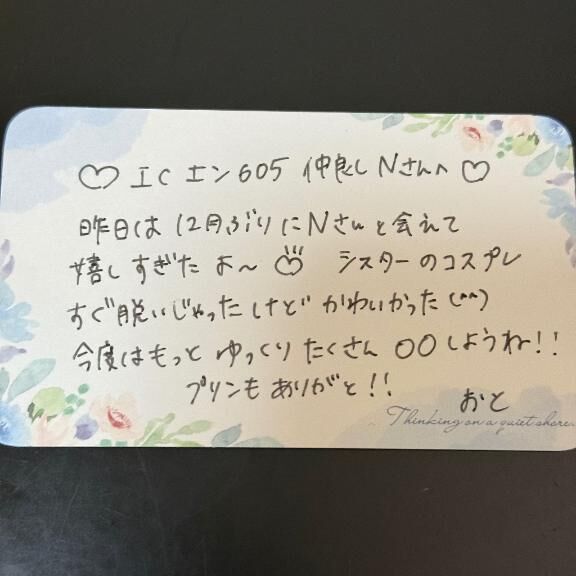 ♡ IC エン 605 仲良し Nさんへ ♡
昨日は 12月ぶりに Nさんと会えて
嬉しすぎたよ〜♡ シスターのコスプレ
すぐ脱いじゃったけど かわいかった(^^)
今度はもっと ゆっくり たくさん 〇〇しようね!!
プリンも ありがと!!
おと
Thinking on a quiet shore.